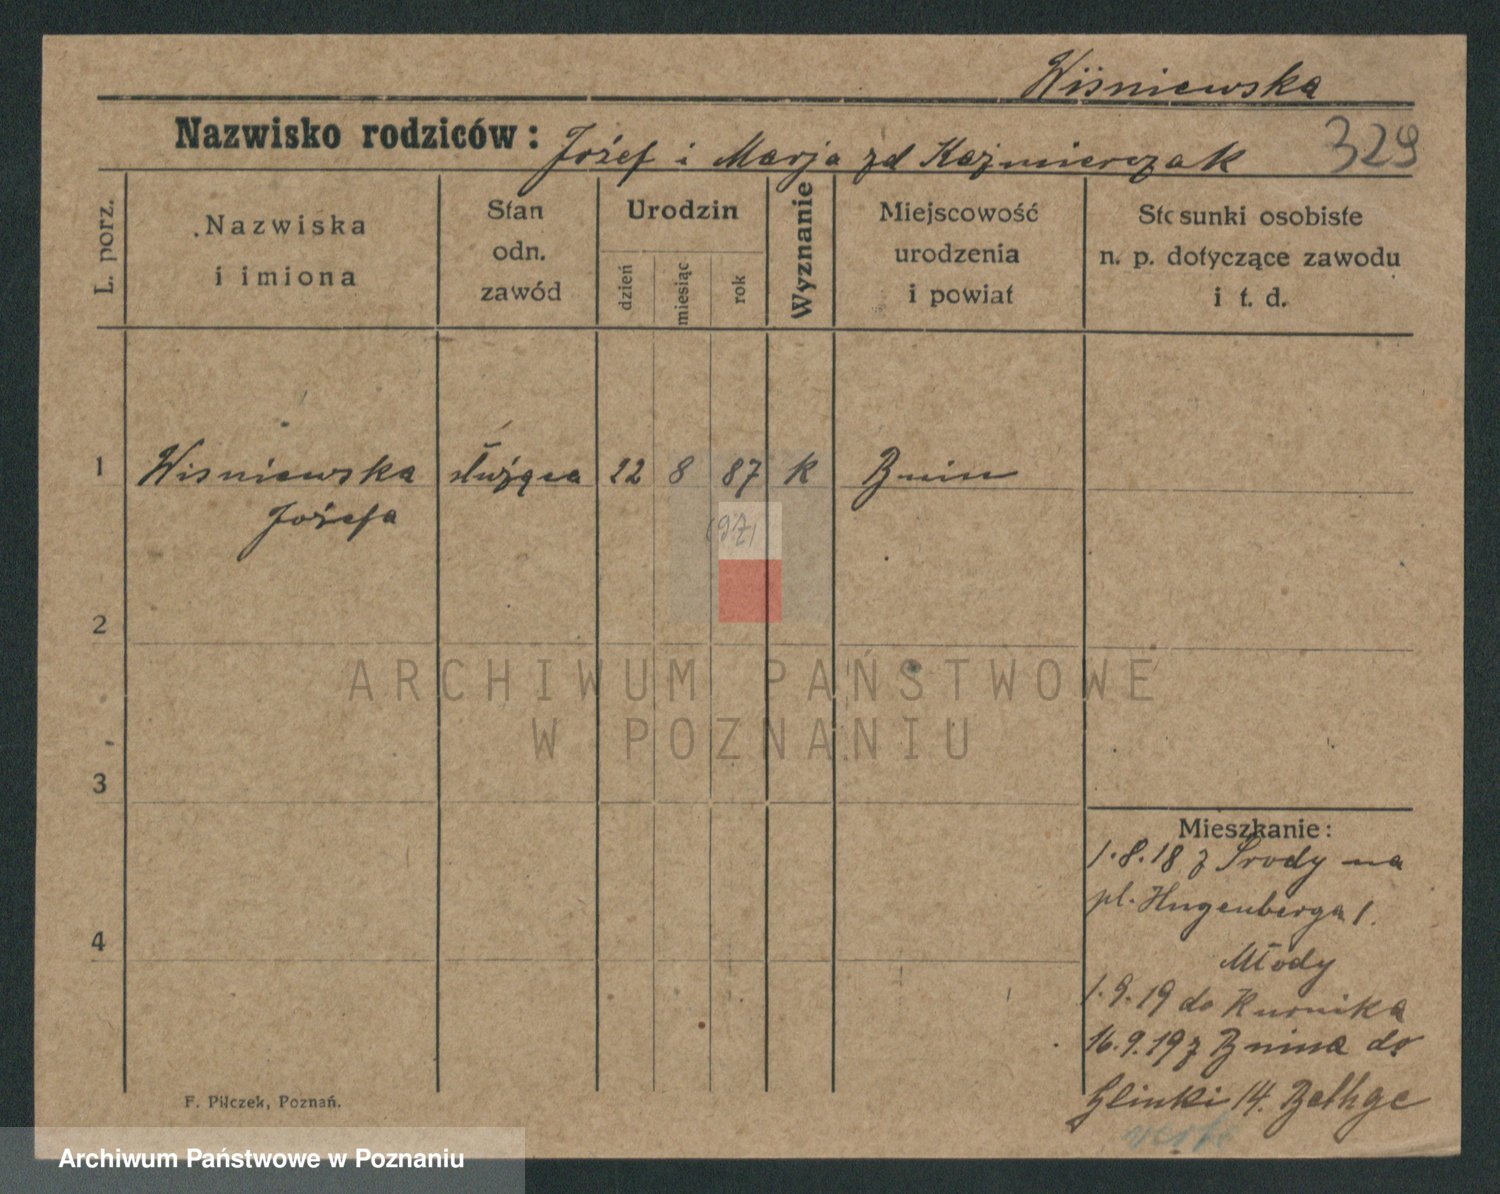 Wiśniewska
Nazwisko rodziców: Józef i Marja zd Kaźmierczak
329
L. porz.
Nazwiska
i imiona
Stan
odn.
zawód
Urodzin
dzień
miesiąc
rok
Wyznanie
Miejscowość
urodzenia
i powiat
Stosunki osobiste
n. p. dotyczące zawodu
i t. d.
1
Wisniewska
Józefa
służąca
22
8
87
k
Bnin
2
3
4
Mieszkanie:
1.8.18 z Środy na
pl. Hugenberga 1.
Młody
1.9.19 do Kurnika
16.9.19 z Bnina do
Glinki 14. Bethge
F. Pilczek, Poznań.
ARCHIWUM PAŃSTWOWE
W POZNANIU
Archiwum Państwowe w Poznaniu